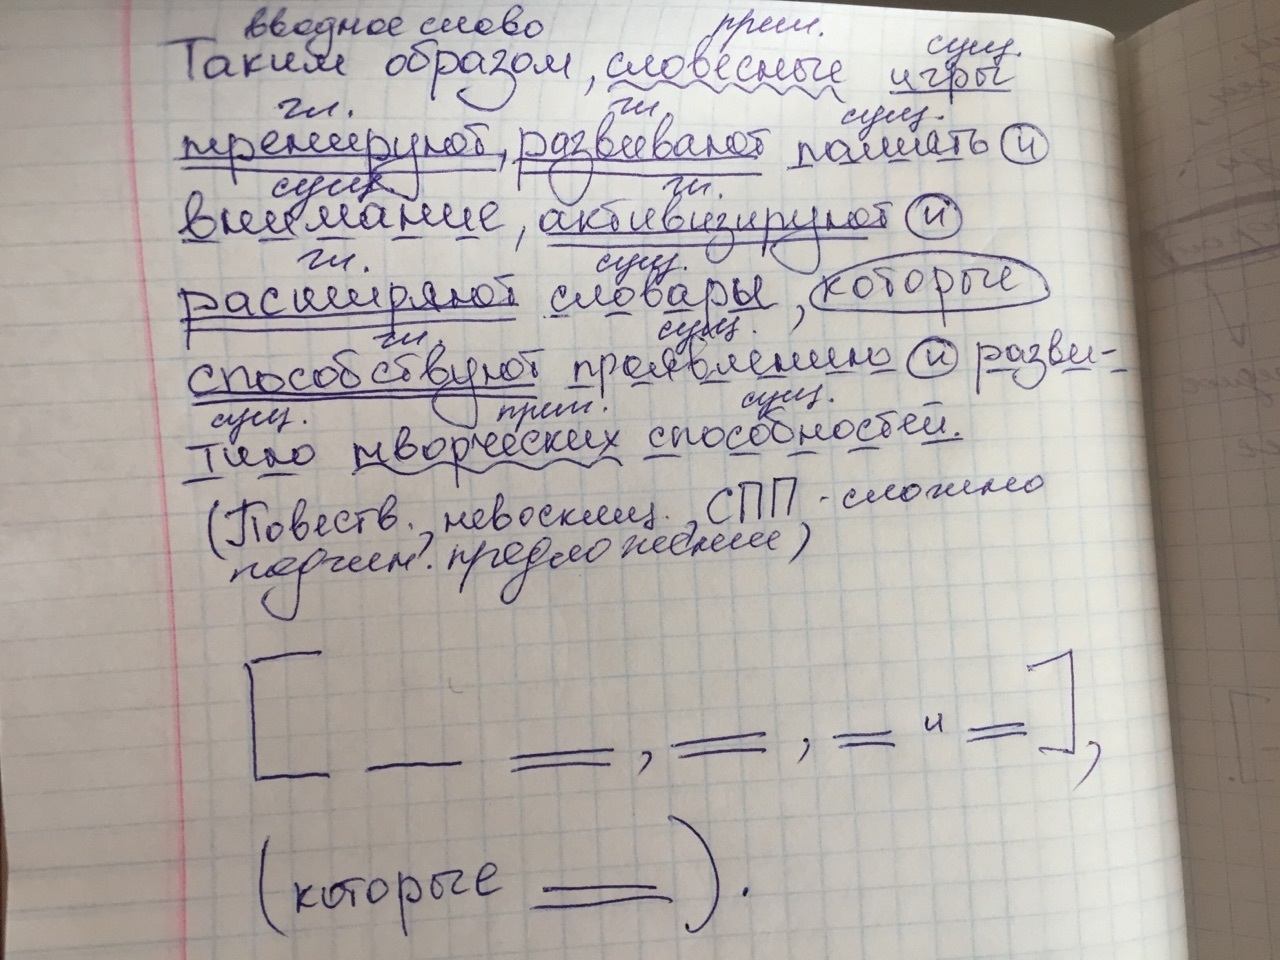 вводное слово прил. сущ.
Таким образом, словесные игры
гл. гл. сущ.
тренируют, развивают память и
сущ. гл.
внимание, активизируют и
гл. сущ.
расширяют словары, которые
гл. сущ.
способствуют проявлению и разви-
сущ. прил. сущ.
тию творческих способностей.
(Повеств., невосклиц., СПП - сложно
подчин. предложение)
[ , , и ],
(которые ).